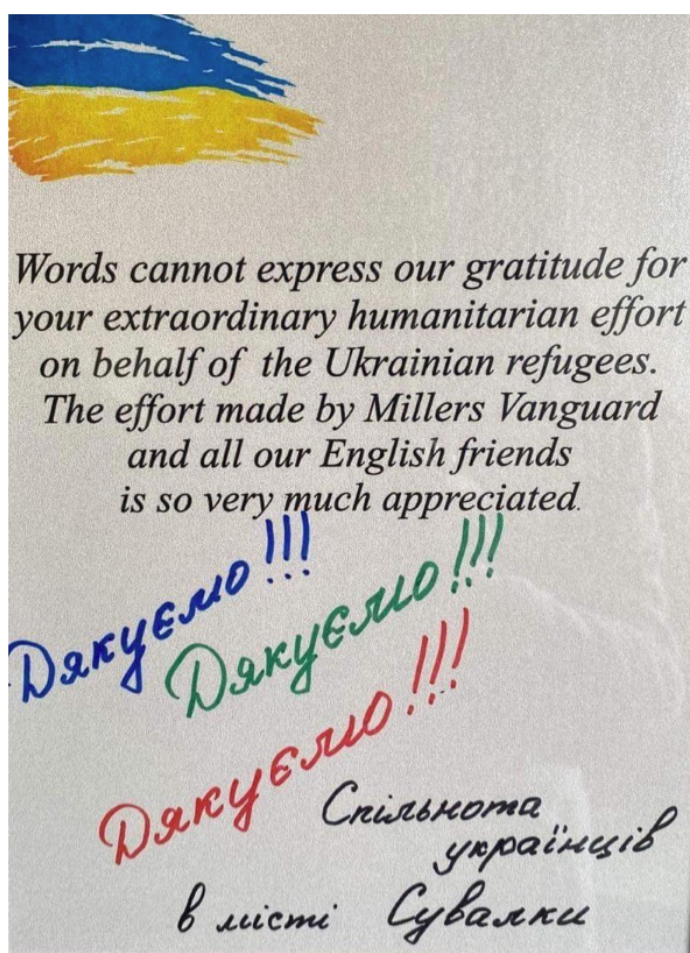 Words cannot express our gratitude for
your extraordinary humanitarian effort
on behalf of the Ukrainian refugees.
The effort made by Millers Vanguard
and all our English friends
is so very much appreciated.
Дякуємо!!!
Дякуємо!!!
Дякуємо!!!
Спільнота
українців
в місті Сувалки